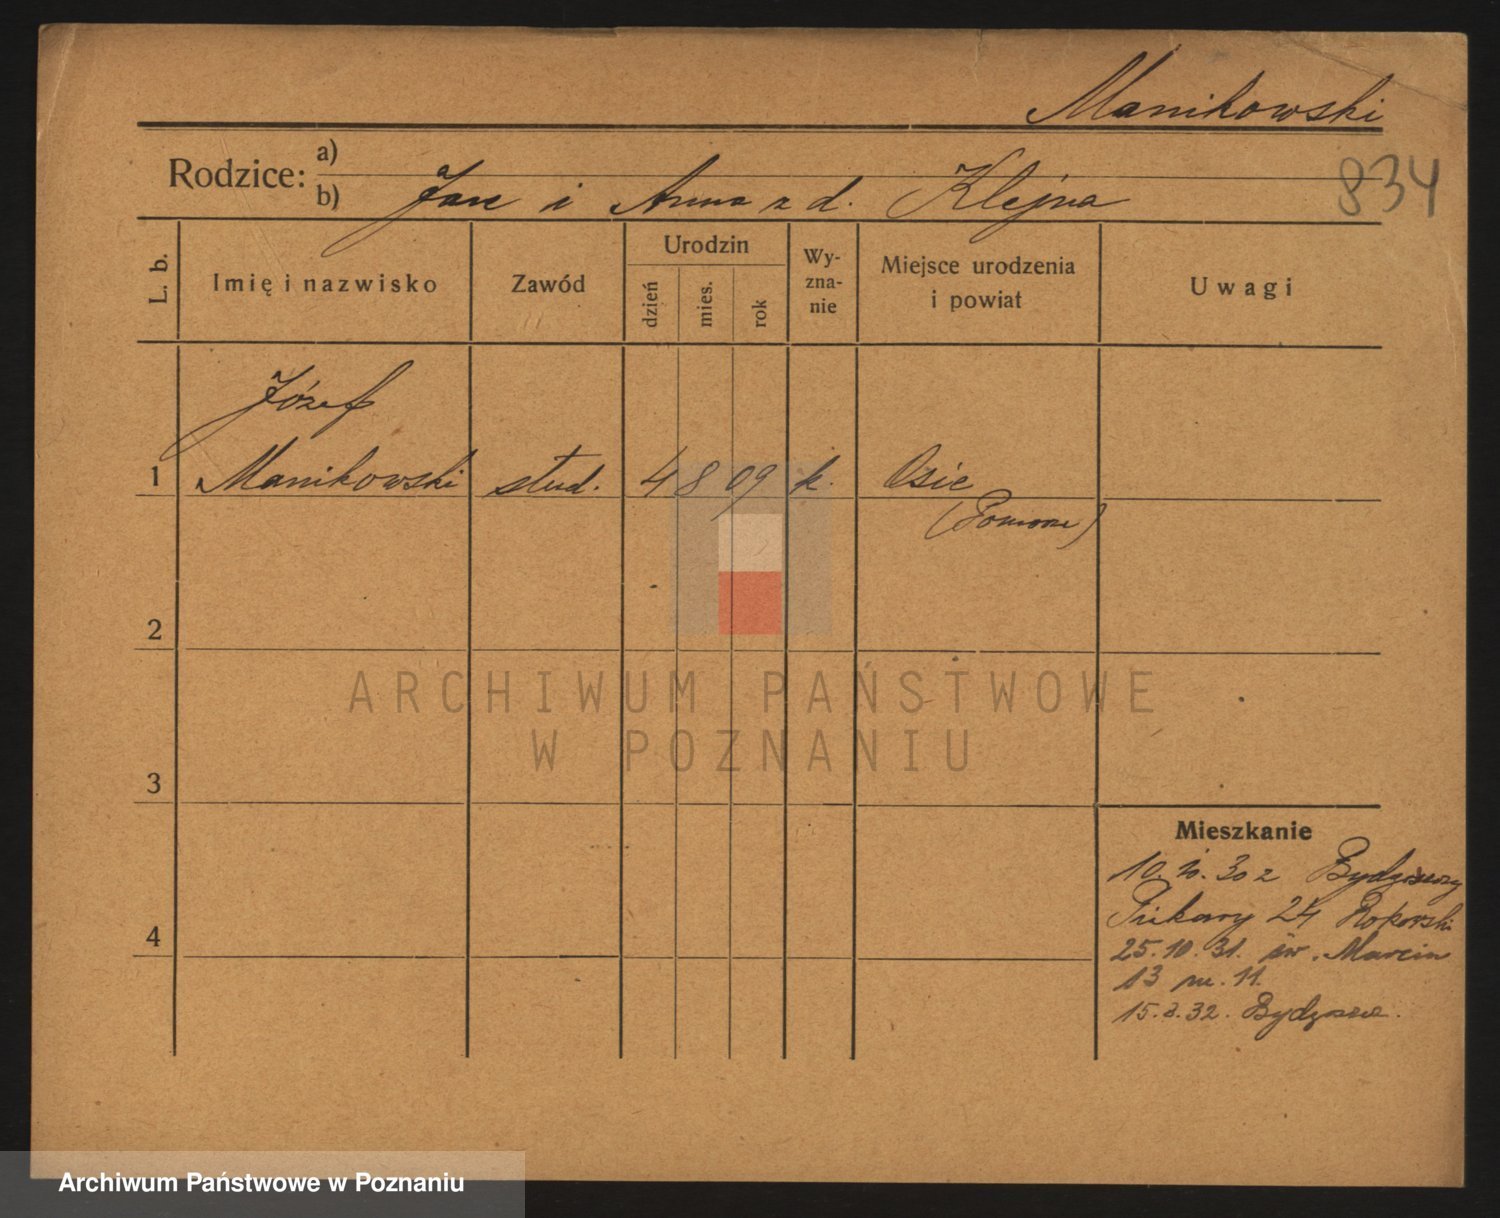 Manikowski
Rodzice: a)
b) Jan i Anna z d. Klejna
834
L. b.
Imię i nazwisko
Zawód
Urodzin
dzień
mies.
rok
Wy-
zna-
nie
Miejsce urodzenia
i powiat
Uwagi
Józef
1 Manikowski stud. 4 8 09 k. Osie
(Pomorze)
2
ARCHIWUM PAŃSTWOWE
W POZNANIU
3
Mieszkanie
10. 10. 30 z Bydgoszczy
Piekary 24 Rokowski
4
25. 10. 31. św. Marcin
13 m. 11.
15. 3. 32. Bydgoszcz.
Archiwum Państwowe w Poznaniu